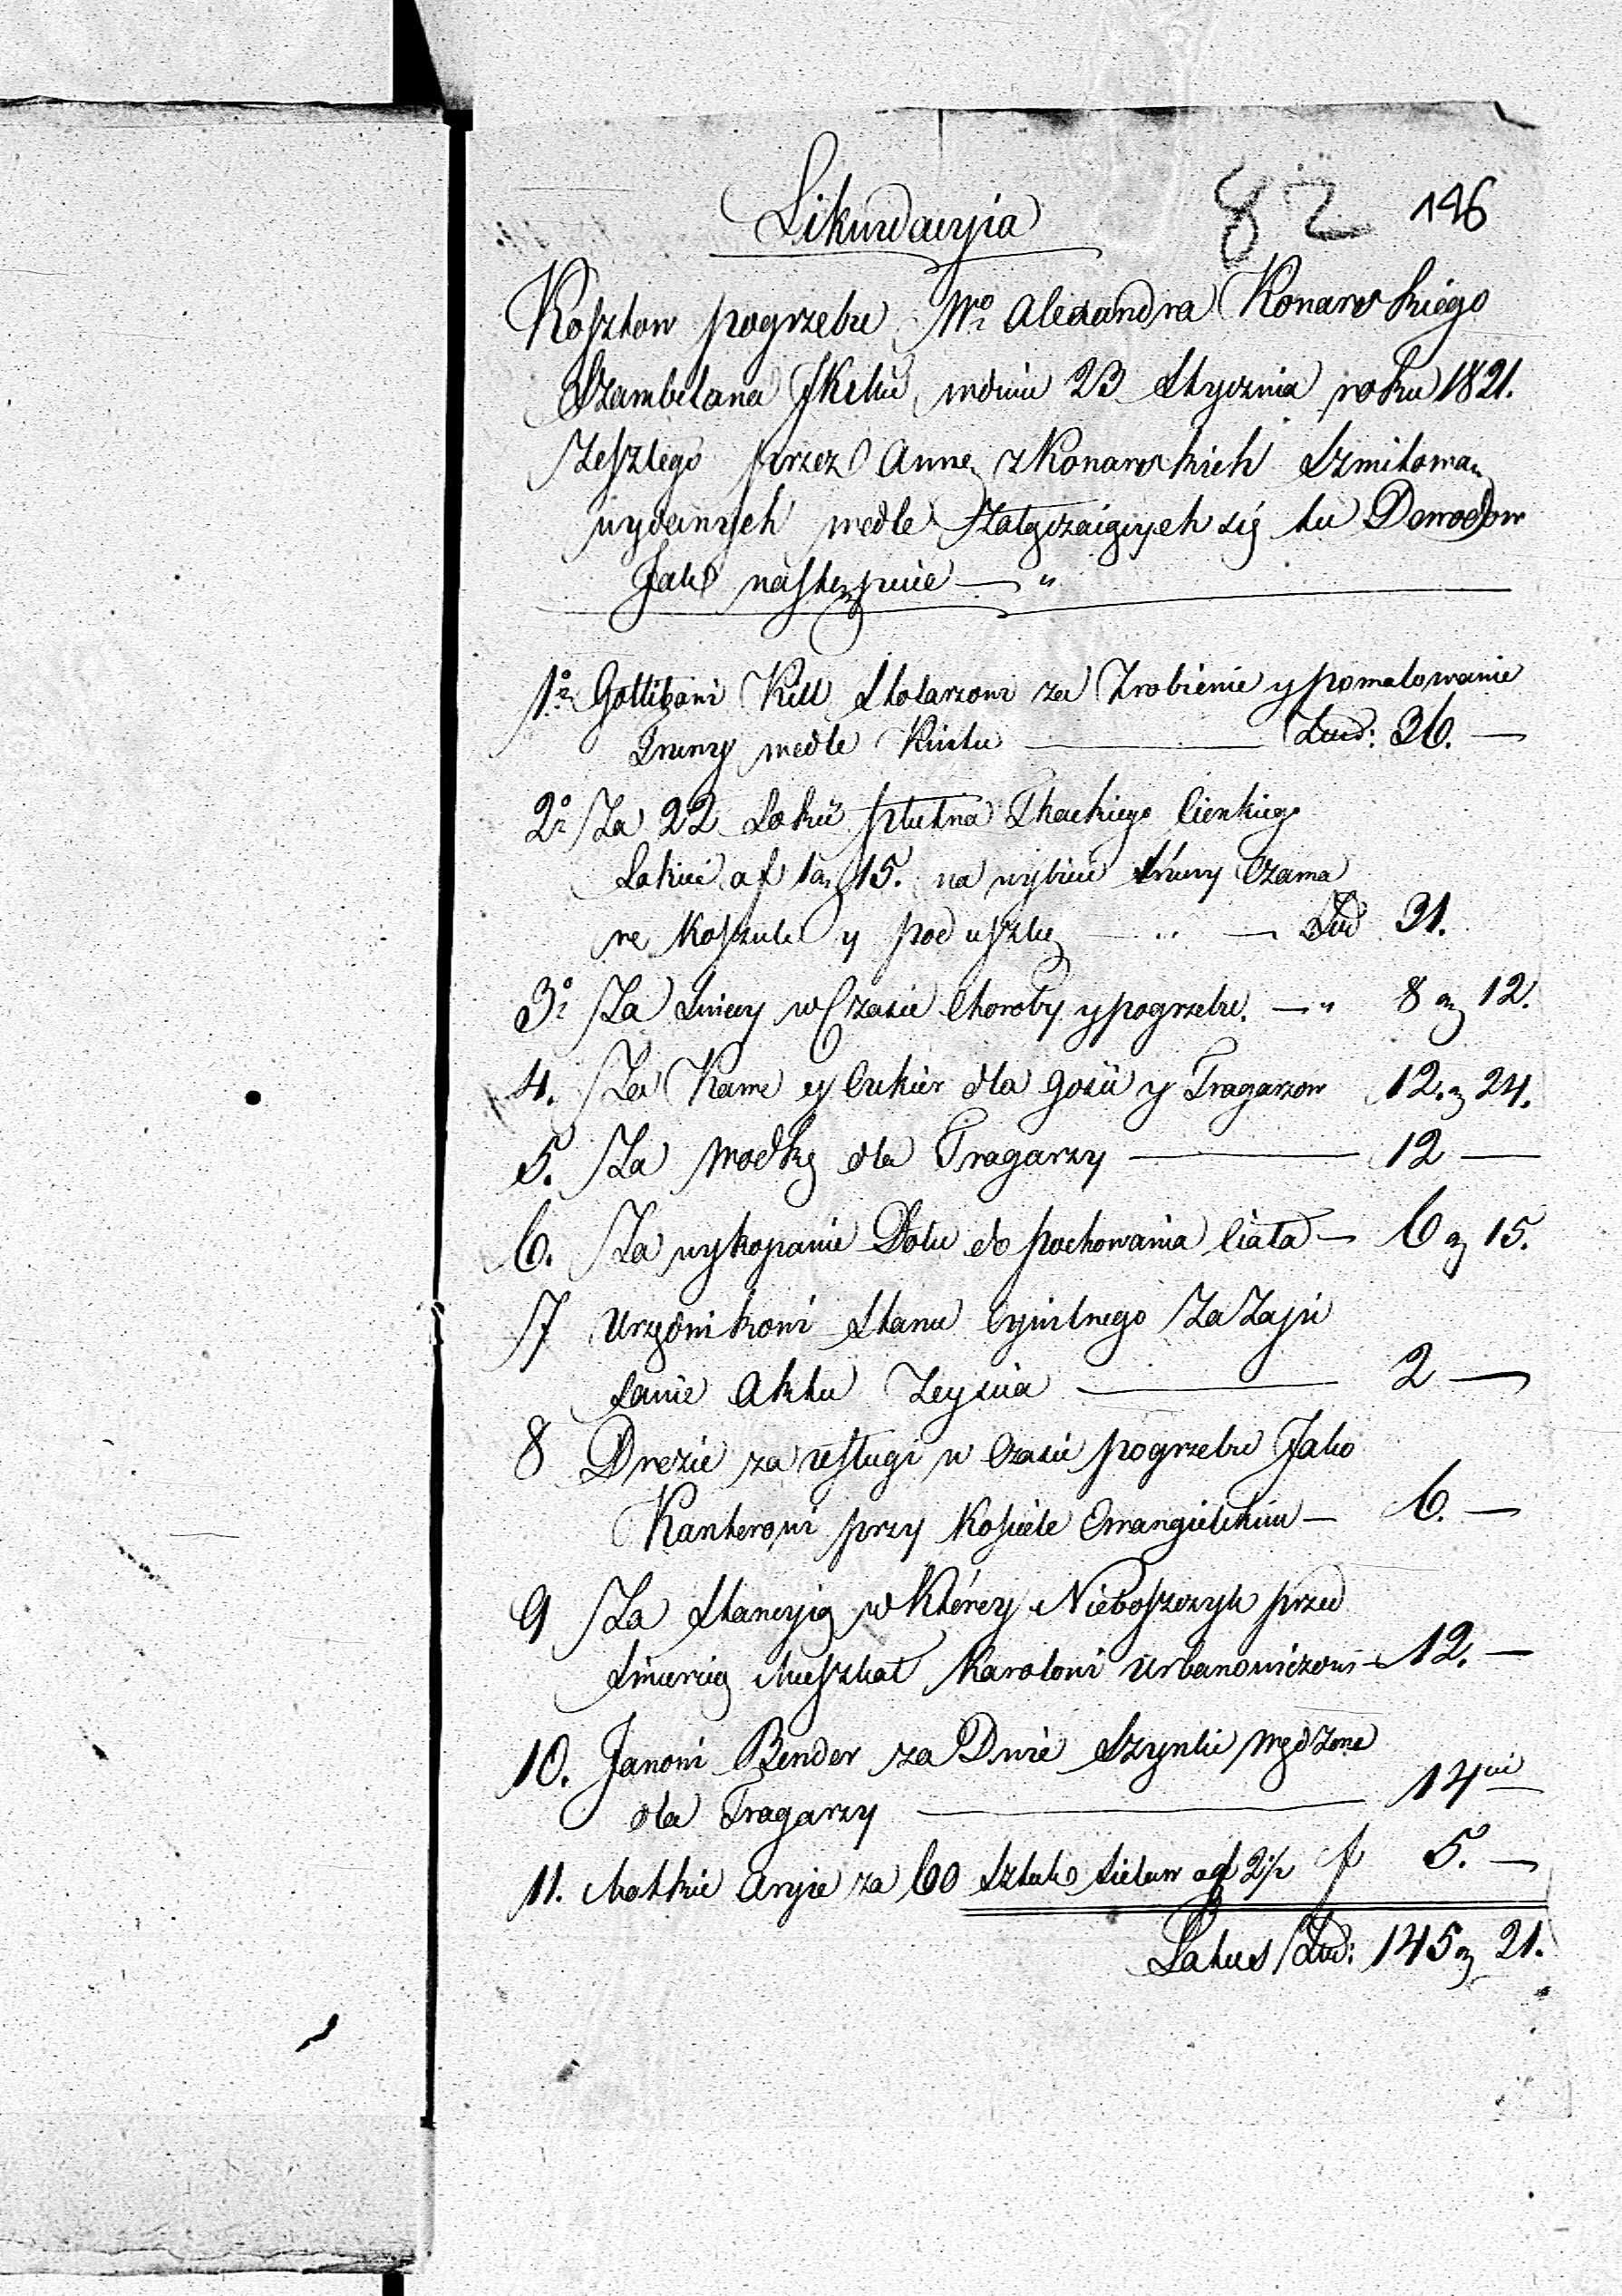 Likwidacyia
82 146
Kosztow pogrzebu Wo Alexandra Konarskiego
Szambelana JKMci w dniu 23 Stycznia roku 1821.
Zeszłego przez Annę z Konarskich Szmitową
wydanych wedle Załączaiących się tu Dowodow
Jako następuie — "
1o Gottlibowi Kill Stolarzowi za Zrobienie y pomalowanie
Truny wedle Kwitu — 36. —
2o Za 22 Łokci płutna Tkackiego Cienkiego
Łokieć a f 1 g 15. na wybicie truny Czama
re koszule y poduszkę — " — 31.
3o Za Swiecy w Czasie Choroby y pogrzebu. — " 8 g 12.
4. Za Kawe y Cukier dla Gosci y Tragarzow 12. g 24.
5. Za Wodkę dla Tragarzy — 12 —
6. Za wykopanie Dołu do pochowania Ciała — 6 g 15.
7 Urzędnikowi Stanu Cywilnego Za Zapi
sanie Aktu Zeyscia — 2 —
8 Drezie za usługi w Czasie pogrzebu Jako
Kantorowi przy Kosciele Ewangielickim — 6. —
9 Za Stancyią w Którey Nieboszczyk przed
Smiercią Mieszkał Karolowi Urbanowiczowi — 12. —
10. Janowi Bender za Dwie Szynki Wędzone
dla Tragarzy — 14
11. Matkie Aryie za 60 Sztuk a 2½ f 5. —
Latus 145 g 21.